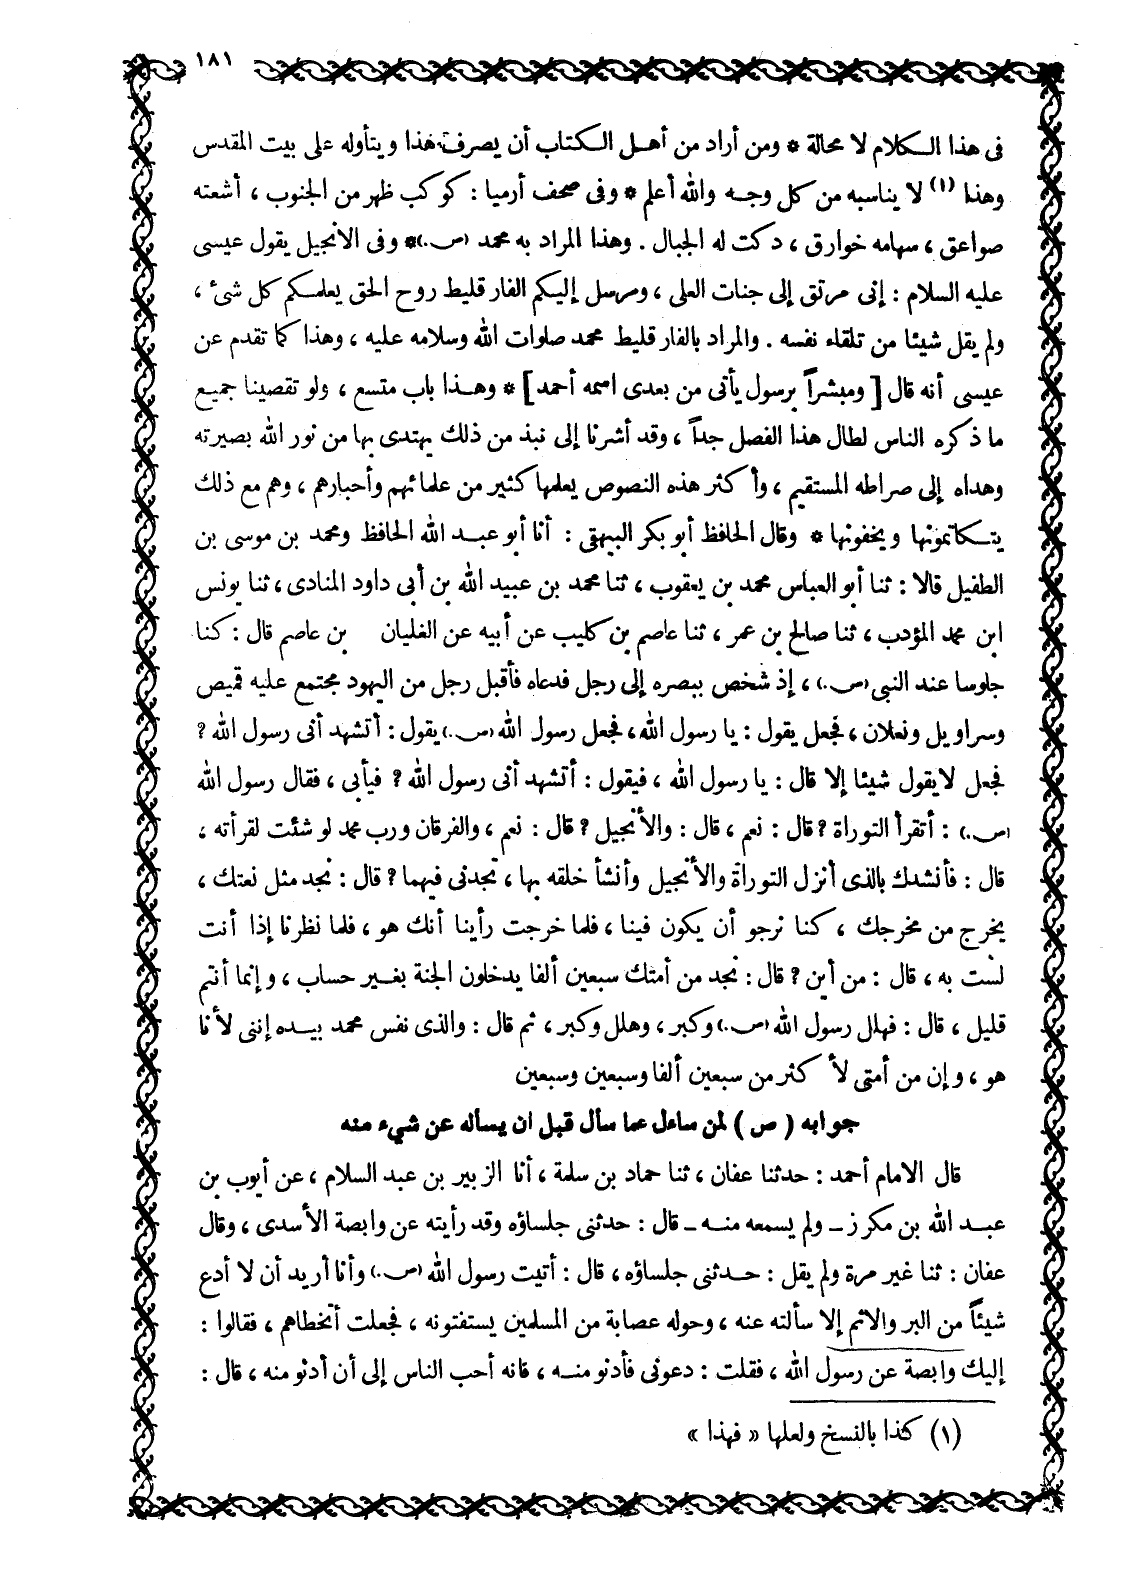 ١٨١
فى هذا الكلام لا محالة * ومن أراد من أهل الكتاب أن يصرف هذا ويتأوله على بيت المقدس
وهذا (١) لا يناسبه من كل وجه والله أعلم * وفى صحف أرميا : كوكب ظهر من الجنوب ، أشعته
صواعق ، سهامه خوارق ، دكت له الجبال . وهذا المراد به محمد (ص.)* وفى الانجيل يقول عيسى
عليه السلام : إنى مرتق إلى جنات العلى ، ومرسل إليكم الفار قليط روح الحق يعلمكم كل شىء ،
ولم يقل شيئا من تلقاء نفسه . والمراد بالفار قليط محمد صلوات الله وسلامه عليه ، وهذا كما تقدم عن
عيسى أنه قال [ ومبشراً برسول يأتى من بعدى اسمه أحمد] * وهذا باب متسع ، ولو تقصينا جميع
ما ذكره الناس لطال هذا الفصل جداً ، وقد أشرنا إلى نبذ من ذلك يهتدى بها من نور الله بصيرته
وهداه إلى صراطه المستقيم ، وأكثر هذه النصوص يعلمها كثير من علمائهم وأحبارهم ، وهم مع ذلك
يتكاتمونها ويخفونها * وقال الحافظ أبو بكر البيهقى : أنا أبو عبد الله الحافظ ومحمد بن موسى بن
الطفيل قالا : ثنا أبو العباس محمد بن يعقوب ، ثنا محمد بن عبيد الله بن أبى داود المنادى ، ثنا يونس
ابن محمد المؤدب ، ثنا صالح بن عمر ، ثنا عاصم بن كليب عن أبيه عن الغليان بن عاصم قال : كنا
جلوسا عند النبى (ص.) ، إذ شخص ببصره إلى رجل فدعاه فأقبل رجل من اليهود مجتمع عليه قميص
وسراويل ونعلان ، فجعل يقول : يا رسول الله ، فجعل رسول الله (ص.) يقول : أتشهد أنى رسول الله ؟
فجعل لا يقول شيئا إلا قال : يا رسول الله ، فيقول : أتشهد أنى رسول الله ؟ فيأبى ، فقال رسول الله
(ص.) : أتقرأ التوراة ؟ قال : نعم ، قال : والأنجيل ؟ قال : نعم ، والفرقان ورب محمد لو شئت لقرأته ،
قال : فأنشدك بالذى أنزل التوراة والأنجيل وأنشأ خلقه بها ، تجدنى فيهما ؟ قال : نجد مثل نعتك ،
يخرج من مخرجك ، كنا نرجو أن يكون فينا ، فلما خرجت رأينا أنك هو ، فلما نظرنا إذا أنت
لست به ، قال : من أين ؟ قال : نجد من أمتك سبعين ألفا يدخلون الجنة بغير حساب ، وإنما أنتم
قليل ، قال : فهلل رسول الله (ص.) وكبر ، وهلل وكبر ، ثم قال : والذى نفس محمد بيده إننى لأنا
هو ، وإن من أمتى لأكثر من سبعين ألفا وسبعين وسبعين
جوابه ( ص ) لمن ساءل عما سأل قبل ان يسأله عن شيء منه
قال الامام أحمد : حدثنا عفان ، ثنا حماد بن سلمة ، أنا الزبير بن عبد السلام ، عن أيوب بن
عبد الله بن مكرز ـ ولم يسمعه منه ـ قال : حدثنى جلساؤه وقد رأيته عن وابصة الأسدى ، وقال
عفان : ثنا غير مرة ولم يقل : حدثنى جلساؤه ، قال : أتيت رسول الله (ص.) وأنا أريد أن لا أدع
شيئاً من البر والاثم إلا سألته عنه ، وحوله عصابة من المسلمين يستفتونه ، فجعلت أتخطاهم ، فقالوا :
إليك وابصة عن رسول الله ، فقلت : دعونى فأدنو منه ، فانه أحب الناس إلى أن أدنو منه ، قال :
(١) كذا بالنسخ ولعلها « فهذا »